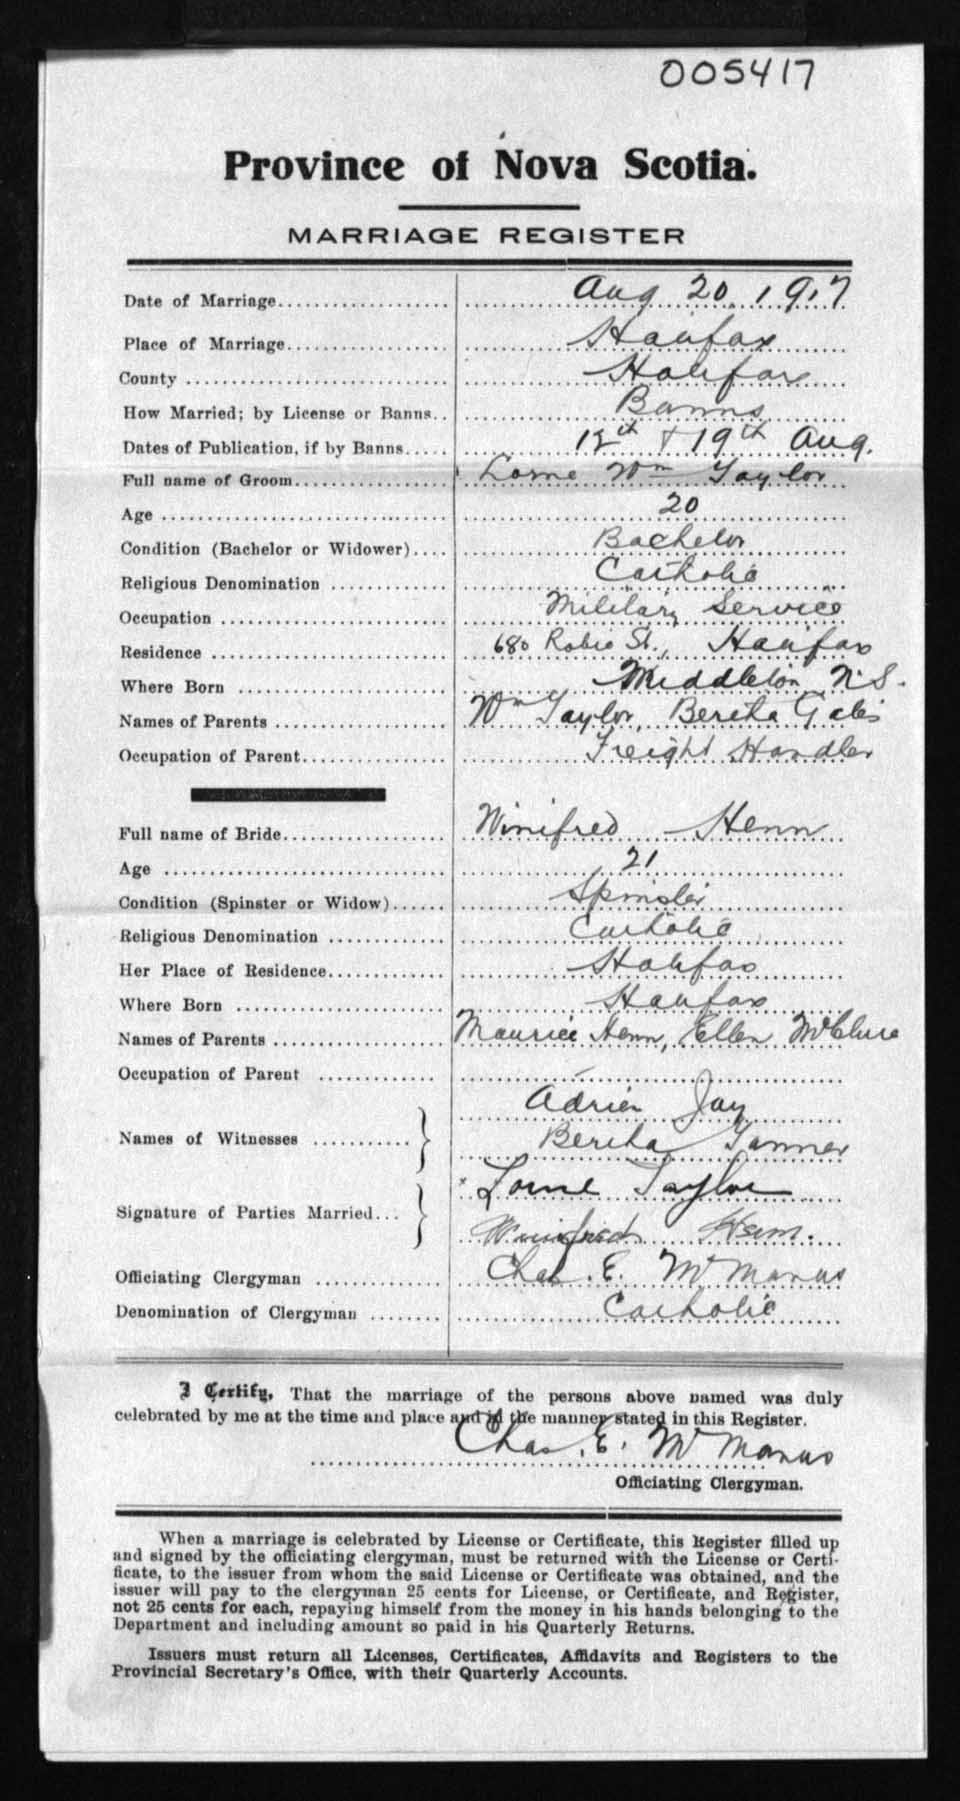 005417
Province of Nova Scotia.
MARRIAGE REGISTER
Date of Marriage Aug 20, 1917
Place of Marriage Halifax
County Halifax
How Married; by License or Banns Banns
Dates of Publication, if by Banns 12th + 19th Aug.
Full name of Groom Lorne Wm Taylor
Age 20
Condition (Bachelor or Widower) Bachelor
Religious Denomination Catholic
Occupation Military Service
Residence 680 Robie St., Halifax
Where Born Middleton N.S.
Names of Parents Wm Taylor, Bertha Gates
Occupation of Parent Freight Handler
Full name of Bride Winifred Henn
Age 21
Condition (Spinster or Widow) Spinster
Religious Denomination Catholic
Her Place of Residence Halifax
Where Born Halifax
Names of Parents Maurice Henn, Ellen McClure
Occupation of Parent —
Adrien Jay
Names of Witnesses
Bertha Tanner
x Lorne Taylor
Signature of Parties Married
Winifred Henn.
Officiating Clergyman Chas. E. McManus
Denomination of Clergyman Catholic
I Certify, That the marriage of the persons above named was duly
celebrated by me at the time and place and in the manner stated in this Register.
Chas. E. McManus
Officiating Clergyman.
When a marriage is celebrated by License or Certificate, this Register filled up
and signed by the officiating clergyman, must be returned with the License or Certi-
ficate, to the issuer from whom the said License or Certificate was obtained, and the
issuer will pay to the clergyman 25 cents for License, or Certificate, and Register,
not 25 cents for each, repaying himself from the money in his hands belonging to the
Department and including amount so paid in his Quarterly Returns.
Issuers must return all Licenses, Certificates, Affidavits and Registers to the
Provincial Secretary's Office, with their Quarterly Accounts.